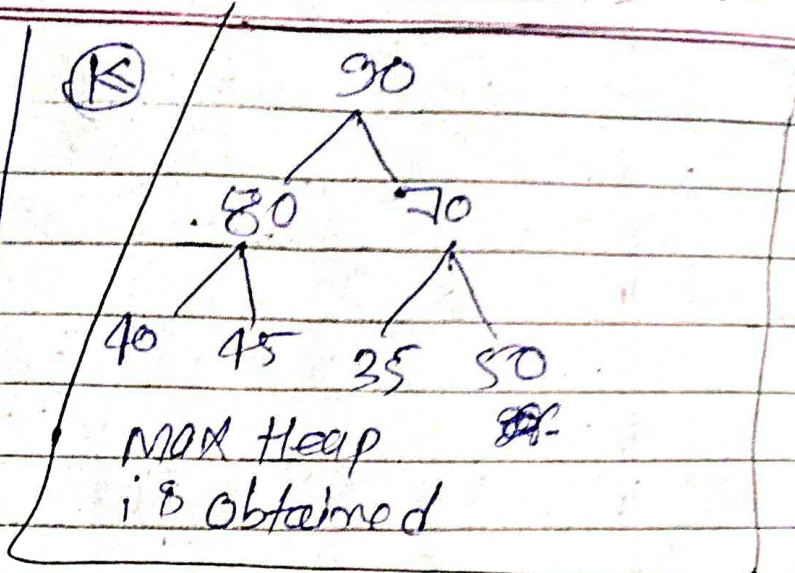 K
90
80 70
40 45 35 50
Max Heap
is obtained